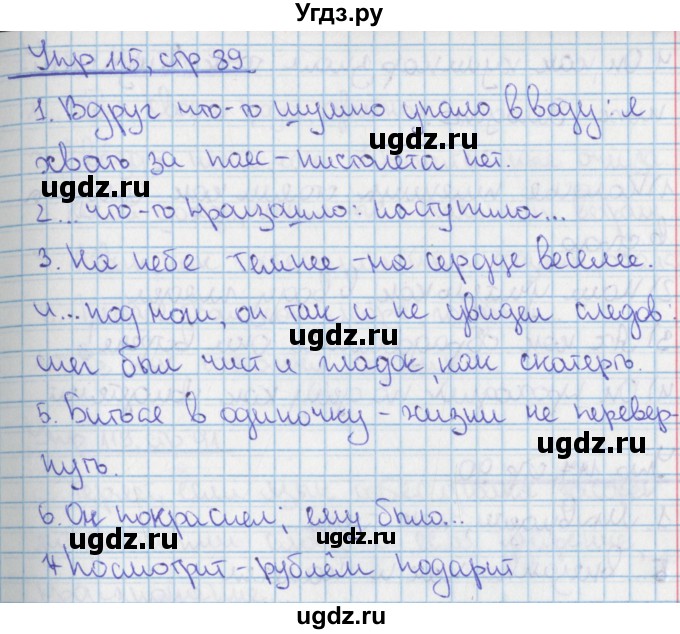 Угдз.ру
Упр 115, стр 89
1. Вдруг что-то шумно упало в воду: я
хвать за пояс - пистолета нет.
ugdz.ru ugdz.ru
2... что-то произошло: наступила...
3. На небе темнее - на сердце веселее.
4... под ноги, он так и не увидел следов:
ugdz.ru
снег был чист и гладок, как скатерть.
5. Биться в одиночку - жизни не перевер-
ugdz.ru
нуть.
6. Он покраснел; ему было...
ugdz.ru ugdz.ru
7 Посмотрит - рублём подарит
ugdz.ru